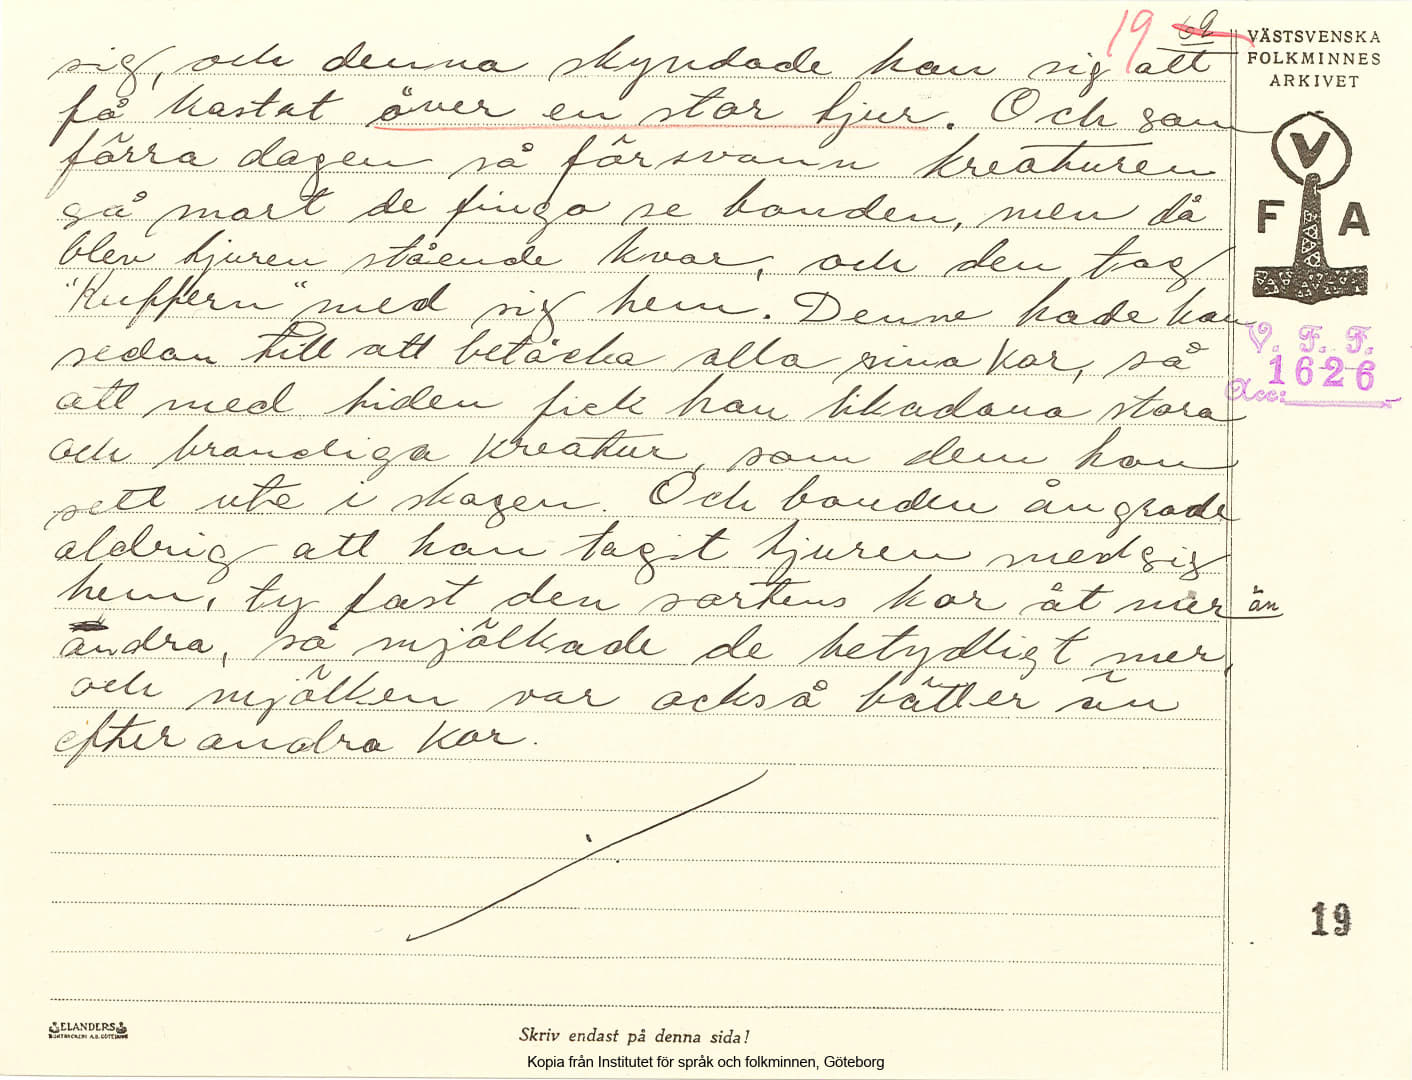 19
VÄSTSVENSKA
FOLKMINNES
ARKIVET
sig, och denna skyndade han sig att
få kastat över en stor tjur. Och som
förra dagen så försvann kreaturen
så snart de fingo se bonden, men då
blev tjuren stående kvar, och den tog
"Kuppern" med sig hem. Denne hade han
sedan till att betäcka alla sina kor, så
att med tiden fick han likadana stora
och brandiga kreatur, som dem han
sett ute i skogen. Och bonden ångrade
aldrig att han tagit tjuren med sig
hem, ty fast den sortens kor åt mer än
andra, så mjölkade de betydligt mer,
och mjölken var också bätter än
efter andra kor.
V
F A
V. F. F.
1626
Acc:
19
ELANDERS
BOKTRYCKERI A.B. GÖTEBORG
Skriv endast på denna sida!
Kopia från Institutet för språk och folkminnen, Göteborg